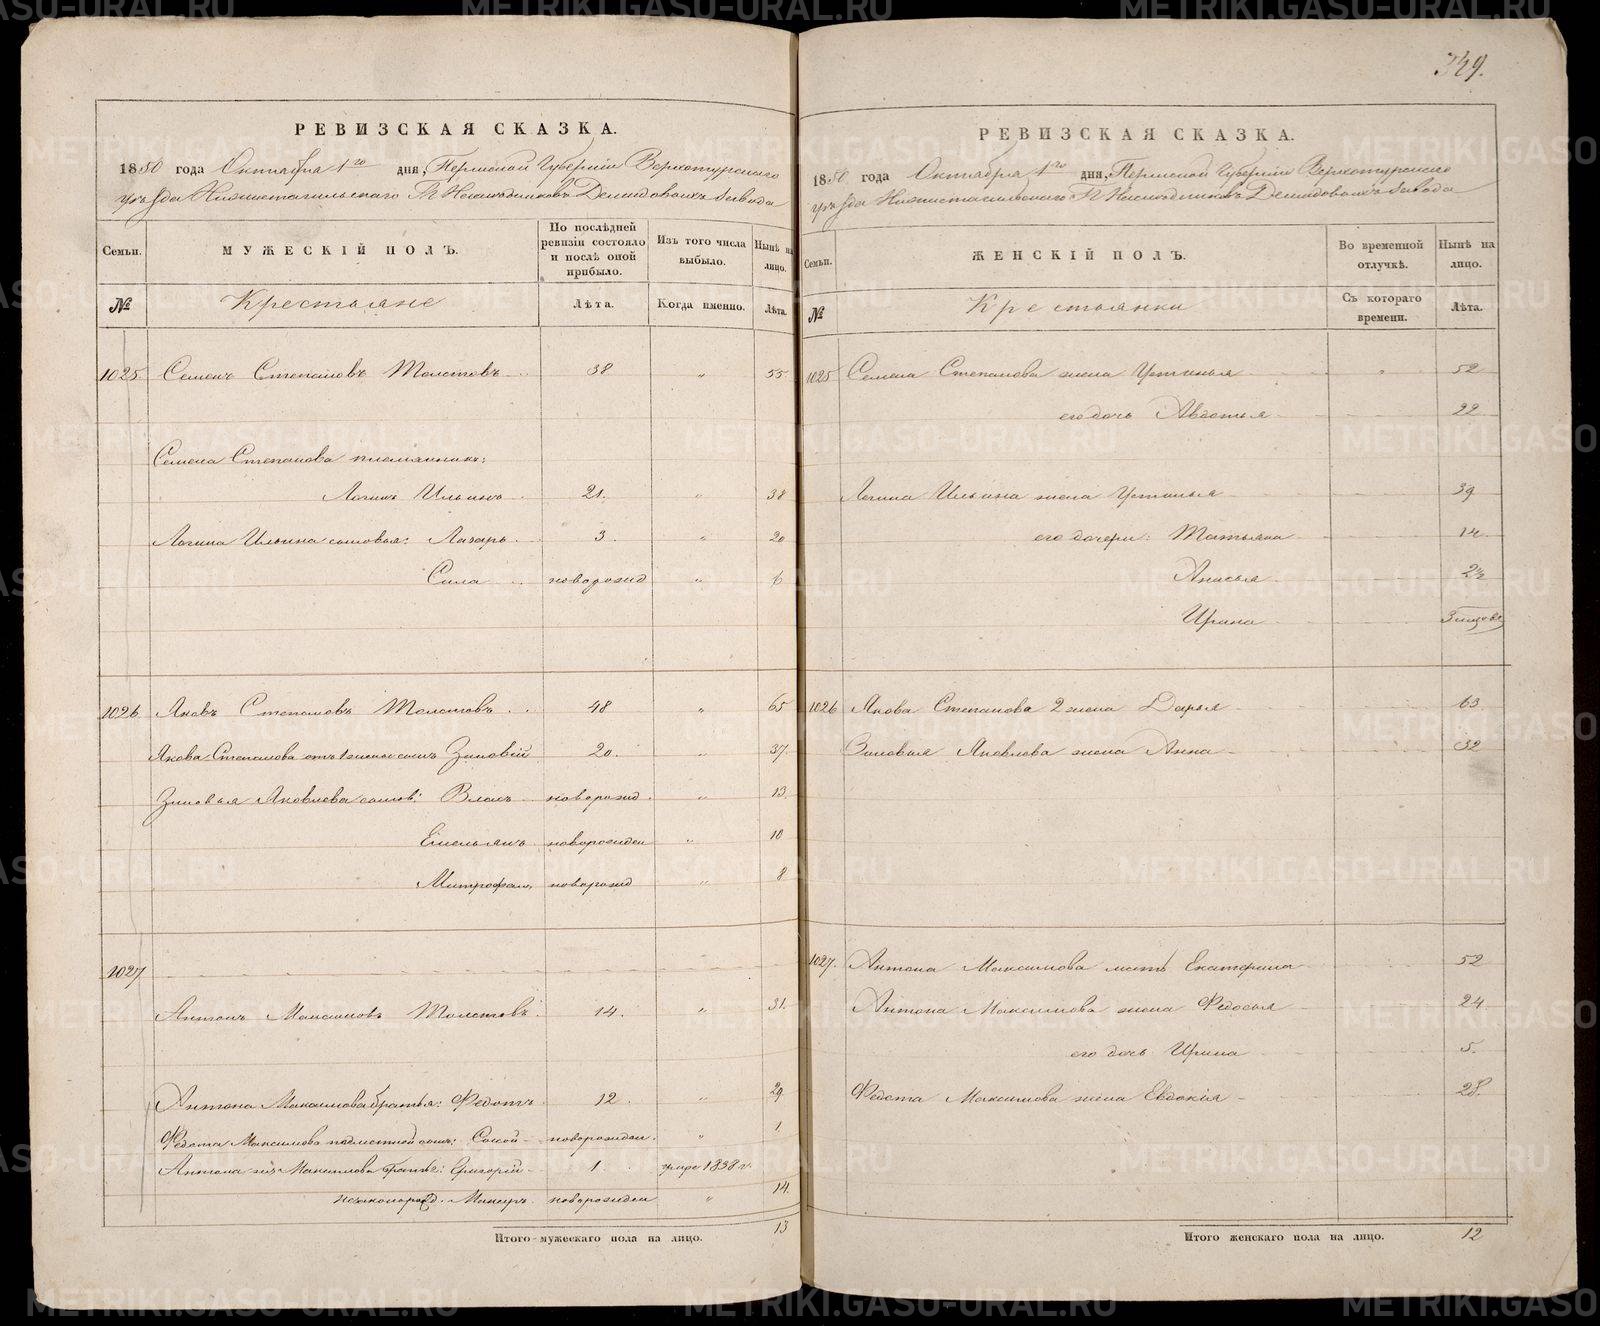 349.
РЕВИЗСКАЯ СКАЗКА.
1850 года Октября 1го дня, Пермской Губернiи Верхотурскаго
уѣзда Нижнетагильскаго Гг Наслѣдниковъ Демидовыхъ завода
Семьи.
МУЖЕСКIЙ ПОЛЪ.
По послѣдней ревизiи состояло и послѣ оной прибыло.
Изъ того числа выбыло.
Нынѣ на лицо.
№
Крестьяне
Лѣта.
Когда именно.
Лѣта.
1025 Семенъ Степановъ Толстовъ 38 " 55
Семена Степанова племянникъ:
Логинъ Ильинъ 21. " 38
Логина Ильина сыновья: Лазарь 3. " 20
Сила новорожд " 6
1026 Яковъ Степановъ Толстовъ 48 " 65
Якова Степанова отъ 1 жены сынъ Зиновiй 20. " 37.
Зиновья Яковлева сынов: Власъ новорожд. " 13
Емельянъ новорожден " 10
Митрофанъ новорожд " 8
1027
Антонъ Максимовъ Толстовъ 14. " 31.
Антона Максимова братья: Федотъ 12. " 29
Федота Максимова сынъ: новорожден. " 1
Антона же Максимова братъ: Григорiй 1. умре 1838 г.
новорожден " 14.
Итого мужескаго пола на лицо. 13
РЕВИЗСКАЯ СКАЗКА.
1850 года Октября 1го дня, Пермской Губернiи Верхотурскаго
уѣзда Нижнетагильскаго Гг Наслѣдниковъ Демидовыхъ завода
Семьи.
ЖЕНСКIЙ ПОЛЪ.
Во временной отлучкѣ.
Нынѣ на лицо.
№
Крестьянки
Съ котораго времени.
Лѣта.
1025 Семена Степанова жена Устинья " 52
его дочь Авдотья 22
Логина Ильина жена Устинья 39
его дочери: Татьяна 14.
Анисья 2½
Ирина
1026 Якова Степанова 2 жена Дарья 63
Зиновья Яковлева жена Анна 32
1027. Антона Максимова мать Екатерина 52
Антона Максимова жена Федосья 24
его дочь Ирина 5.
Федота Максимова жена Евдокiя 28.
Итого женскаго пола на лицо. 12
METRIKI.GASO-URAL.RU